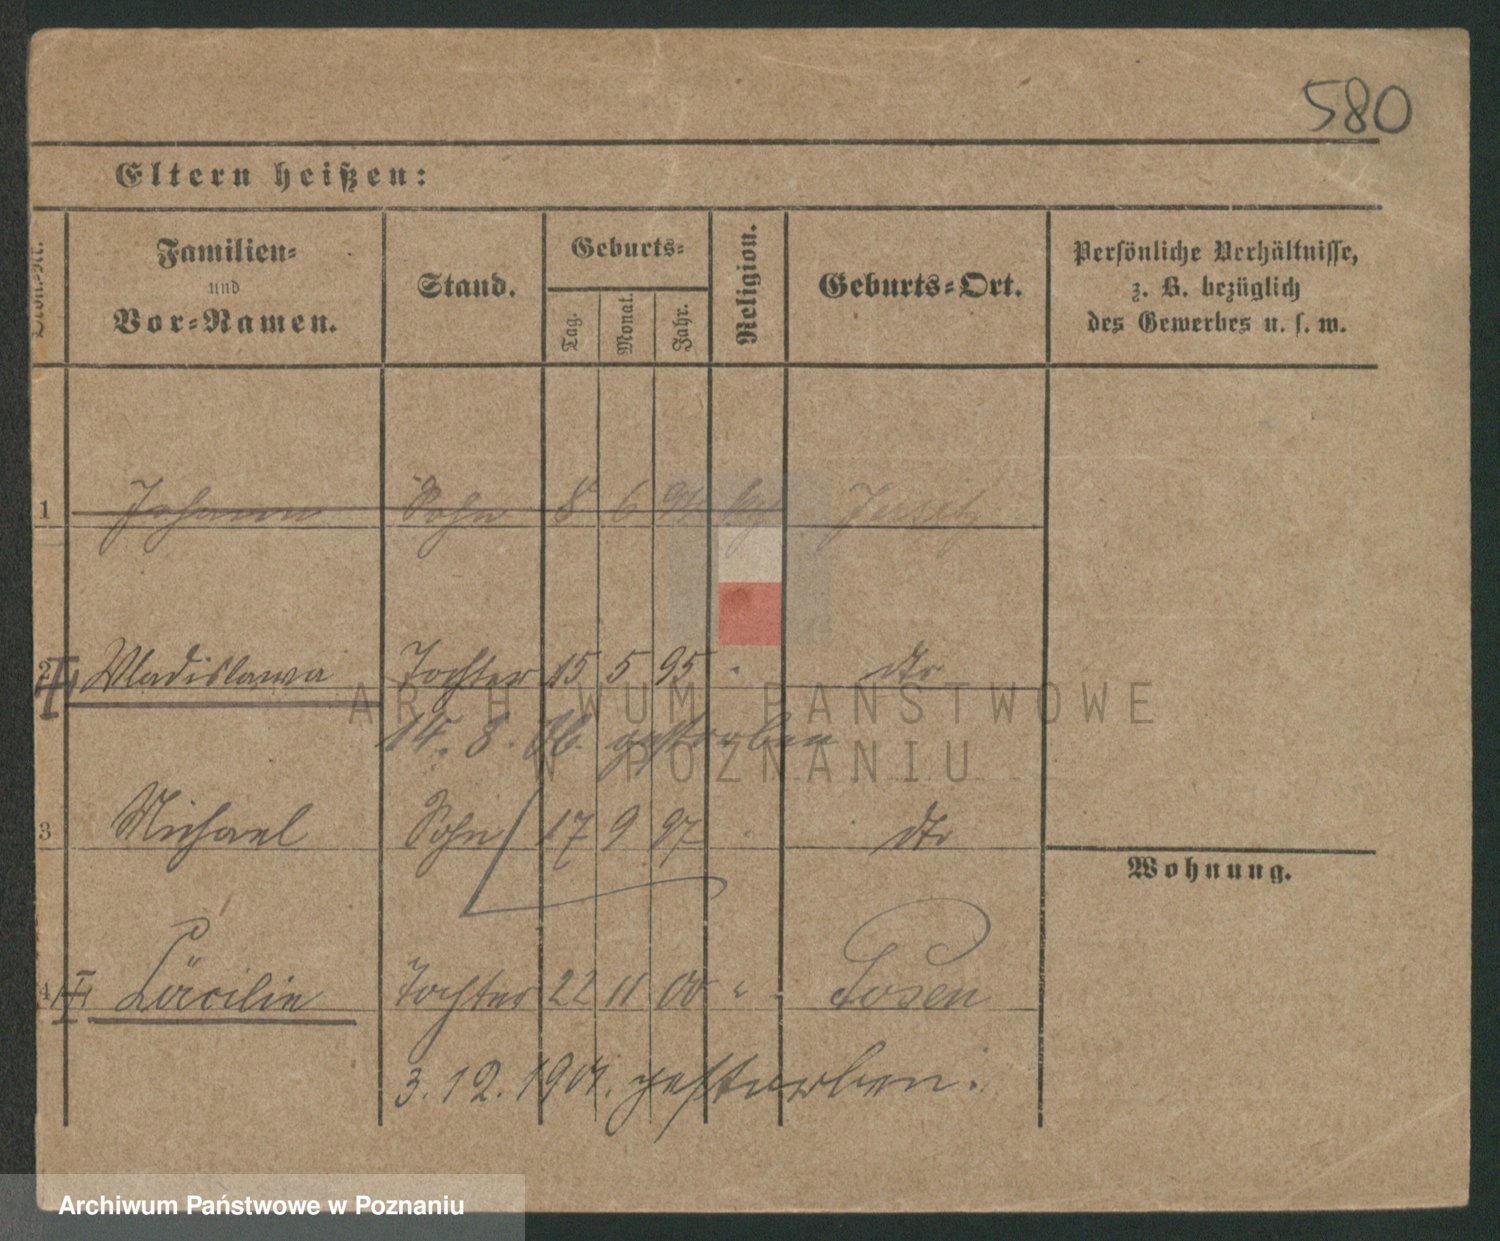 580
Eltern heißen:
Familien-
und
Vor-Namen.
Stand.
Geburts-
Tag.
Monat.
Jahr.
Religion.
Geburts-Ort.
Persönliche Verhältnisse,
z. B. bezüglich
des Gewerbes u. s. w.
1 Johann Sohn 8 6
2 Wladislawa Tochter 15 5 95 " dto
ARCHIWUM PAŃSTWOWE
14. 8. 06. gestorben
W POZNANIU
3 Michael Sohn 17 9 97 " dto
Wohnung.
4 Cäcilie Tochter 22 11 00 " Posen
3. 12. 1901. gestorben.
Archiwum Państwowe w Poznaniu